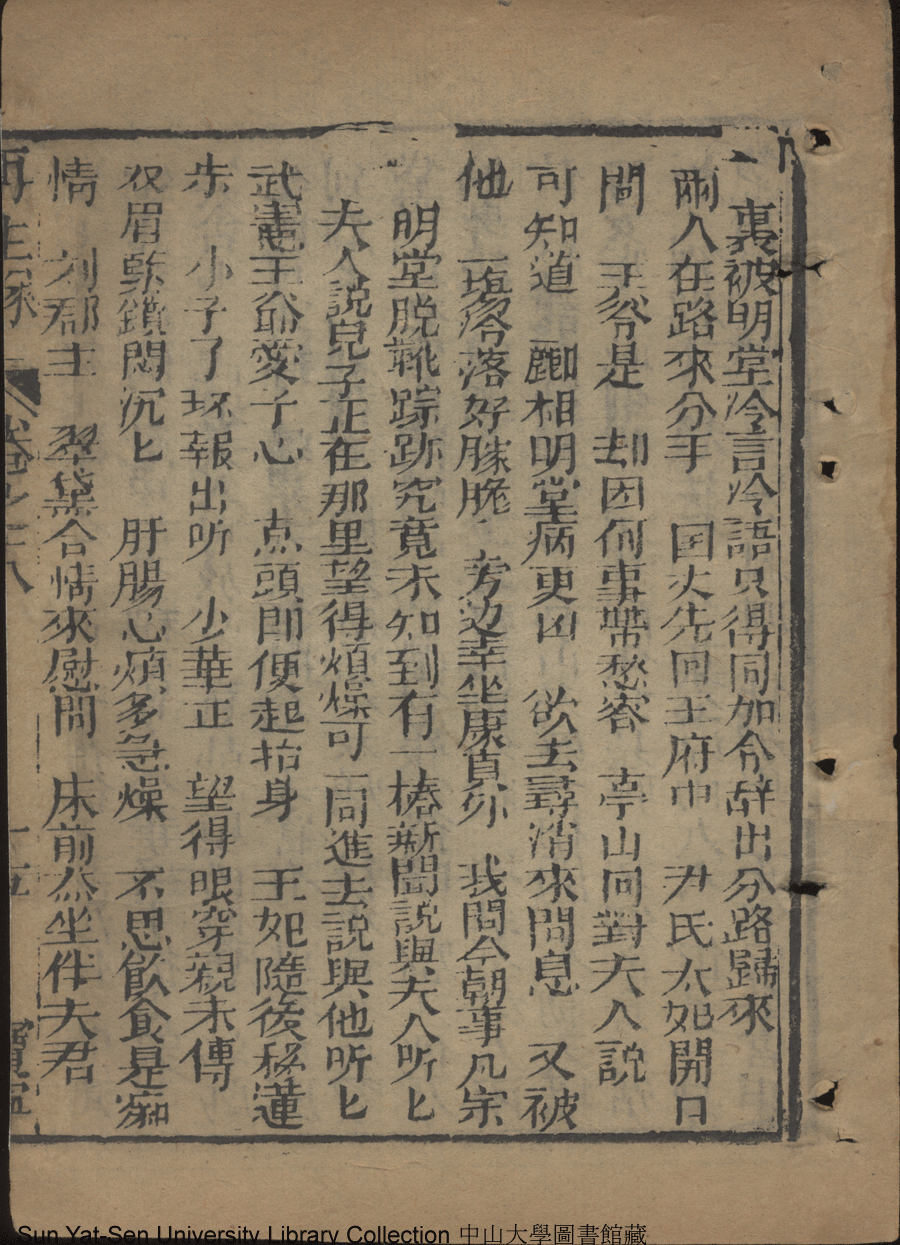 裏被明堂冷言冷語只得同加令辞出分路歸來
兩人在路來分手 国丈先回王府中 尹氏太妃開口
問 王爺是 却因何事帶愁容 亭山回對夫人說
可知道 酈相明堂病更凶 欲去尋消來問息 又被
他 一塲冷落好朦朧 旁边幸坐康員外 我問今朝事凡宗
明堂脱靴踪跡究竟未知到有一樁新聞說與夫人听匕
夫人說兒子正在那里望得煩燥可一同進去說與他听匕
武憲王爺愛子心 点頭即便起抬身 王妃隨後移蓮
步 小子了环報出听 少華正 望得眼穿親未傳
双眉緊鎖悶沉匕 肝腸心煩多急燥 不思飲食是痴
情 刘郡主 翠黛含情來慰問 床前烝坐伴夫君
再生緣 卷之十八 十五 寳寧
Sun Yat-Sen University Library Collection 中山大學圖書館藏